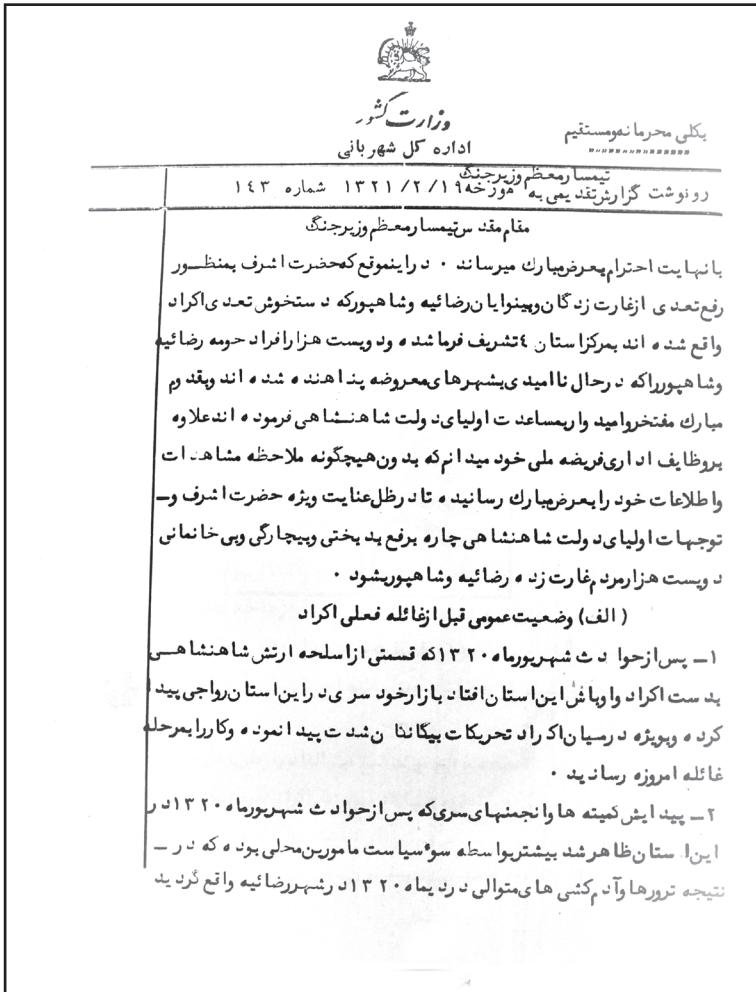 وزارت کشور
اداره کل شهربانی
بکلی محرمانه و مستقیم
تیمسار معظم وزیر جنگ
رونوشت گزارش تقدیمی به مورخه ۱۳۲۱/۲/۱۹ شماره ۱۴۳
مقام مقدس تیمسار معظم وزیر جنگ
با نهایت احترام بعرض مبارك میرساند ۰ در اینموقع که حضرت اشرف بمنظور
رفع تعدی از غارت زدگان و بینوایان رضائیه و شاهپور که دستخوش تعدی اکراد
واقع شده اند بمرکز استان ٤ تشریف فرما شده و دویست هزار افراد حومه رضائیه
و شاهپور را که در حال نا امیدی بشهرهای معروضه پناهنده شده اند و بقدوم
مبارك مفتخر و امیدوار بمساعدت اولیای دولت شاهنشاهی فرموده اند علاوه
بر وظایف اداری فریضه ملی خود میدانم که بدون هیچگونه ملاحظه مشاهدات
و اطلاعات خود را بعرض مبارك رسانیده تا در ظل عنایت ویژه حضرت اشرف و ـ
توجهات اولیای دولت شاهنشاهی چاره بر رفع بدبختی و بیچارگی و بی خانمانی
دویست هزار مردم غارت زده رضائیه و شاهپور بشود ۰
( الف ) وضعیت عمومی قبل از غائله فعلی اکراد
۱ـ پس از حوادث شهریور ماه ۱۳۲۰ که قسمتی از اسلحه ارتش شاهنشاهی
بدست اکراد و اوباش این استان افتاد بازار خود سری در این استان رواجی پیدا
کرده و بویژه در میان اکراد تحریکات شدت پیدا نموده و کار را بمرحله
غائله امروزه رسانید ۰
۲ـ پیدایش کمیته ها و انجمنهای سری که پس از حوادث شهریور ماه ۱۳۲۰ در
این استان ظاهر شد بیشتر بواسطه سوء سیاست مامورین محلی بوده که در ـ
نتیجه ترورها و آدم کشی های متوالی در دیماه ۱۳۲۰ در شهر رضائیه واقع گردید